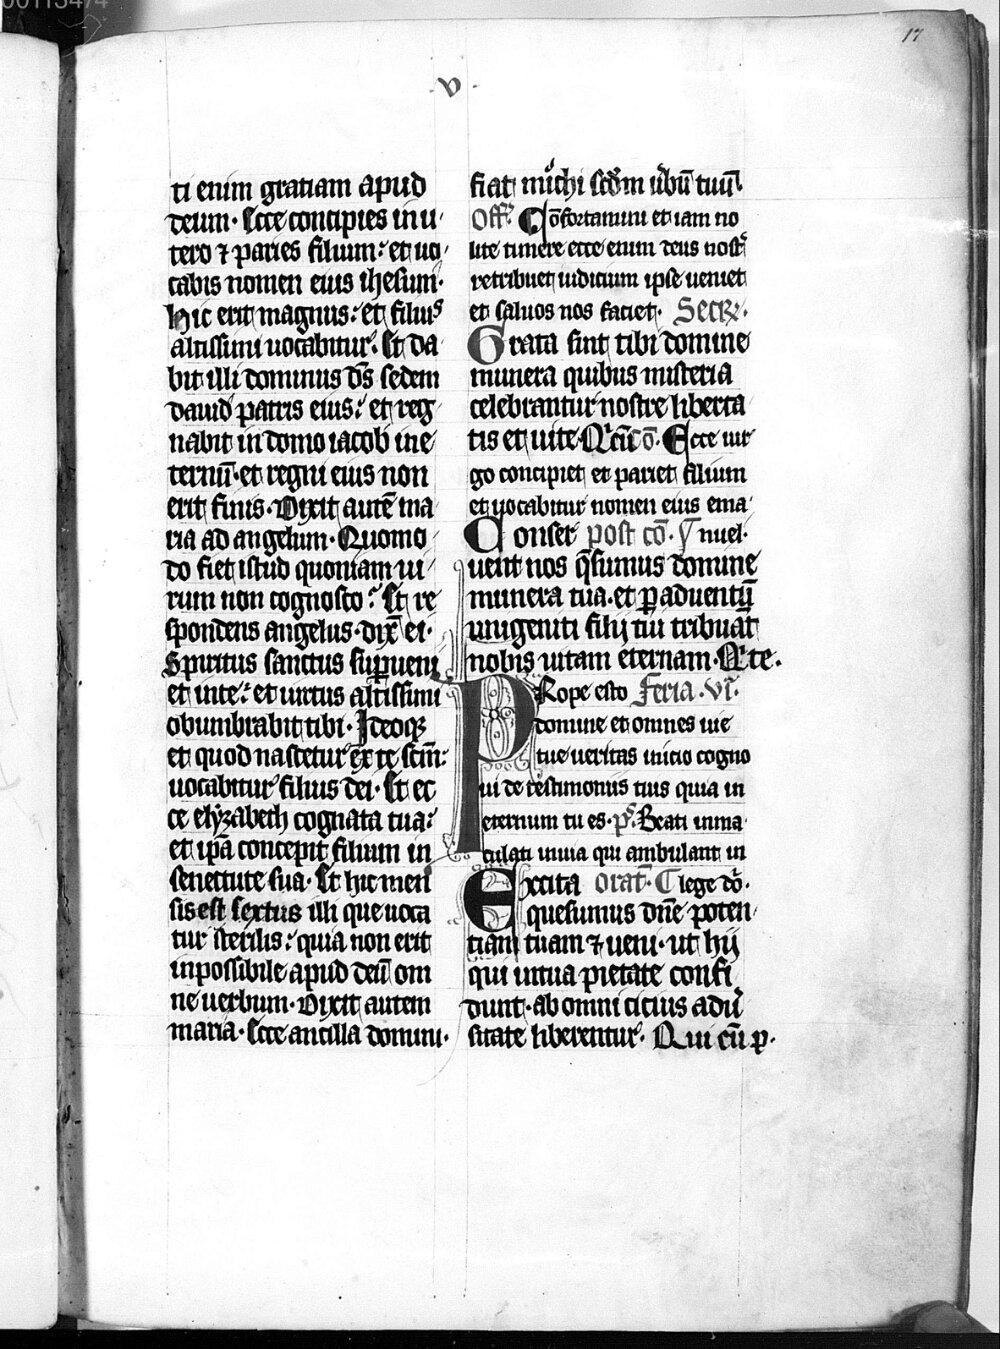 00113474
17
·v·
ti enim gratiam apud
deum· Ecce concipies in u
tero ⁊ paries filium: et uo
cabis nomen eius ihesum·
Hic erit magnus: et filiꝰ
altissimi uocabitur· Et da
bit illi dominus dn̄s sedem
dauid patris eius: et reg
nabit in domo iacob in e
ternū· et regni eius non
erit finis· Dixit autē ma
ria ad angelum· Quomo
do fiet istud quoniam ui
rum non cognosco? Et re
spondens angelus· dix̄ ei·
Spiritus sanctus suꝑueni
et in te: et uirtus altissimi
obumbrabit tibi· Ideoqꝫ
et quod nascetur ex te scm̄:
uocabitur filius dei· Et ec
ce elyzabeth cognata tua:
et ip̄a concepit filium in
senectute sua· Et hic men
sis est sextus illi que uoca
tur sterilis: quia non erit
inpossibile apud deū om
ne uerbum· Dixit autem
maria· Ecce ancilla domini·
fiat michi scd̄m ūbū tuū·
Off̄· Cōfortamini et iam no
lite timere ecce enim deus nost̄
retribuet iudicium ipse ueniet
et saluos nos faciet· Secꝝ·
Grata sint tibi domine
munera quibus misteria
celebrantur nostre liberta
tis et uite· Q̄ cū cō· Ecce uir
go concipiet et pariet filium
et uocabitur nomen eius ema
Conser post cō· nuel·
uent nos q̄sumus domine
munera tua· et ꝑ aduentū
unigeniti filij tui tribuat
nobis uitam eternam· Q̄ te·
PRope esto Feria· vi·
domine et omnes uie
tue ueritas inicio cogno
ui de testimoniis tuis quia in
eternum tu es· p̄s· Beati inma
culati in uia qui ambulant in
Excita orat̄· lege dō·
quesumus dn̄e poten
tiam tuam ⁊ ueni· ut hij
qui in tua pietate confi
dunt· ab omni cicius adū
sitate liberentur· Qui cū p·